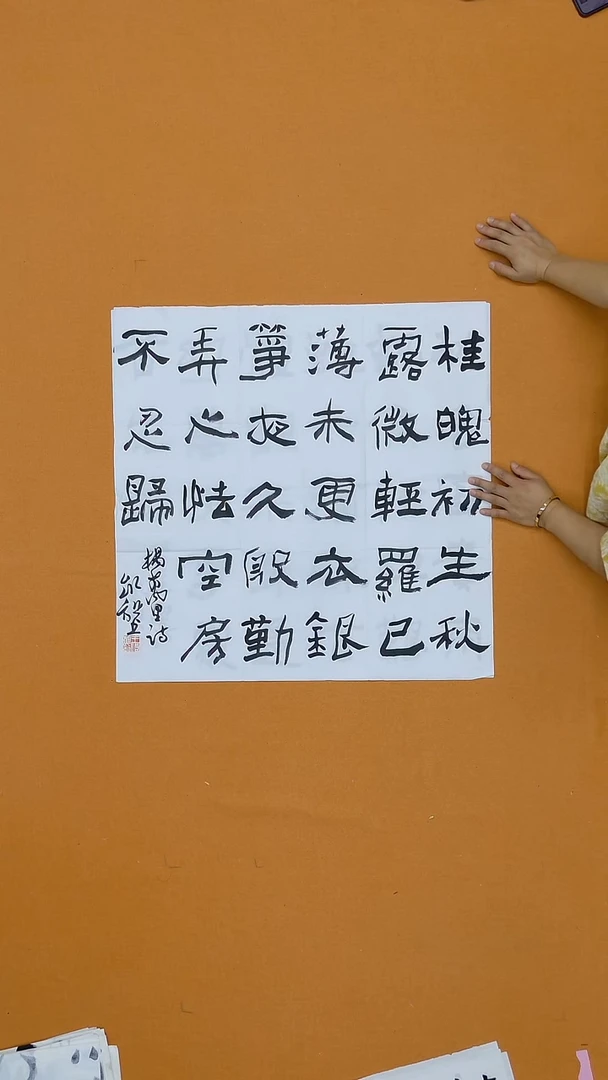 桂魄初生秋
露微輕羅已
薄未更衣銀
箏夜久殷勤
弄心怯空房
不忍歸
楊萬里詩